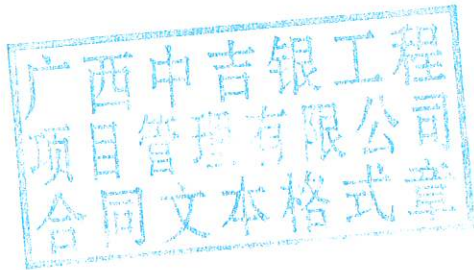 广西中吉银工程
项目管理有限公司
合同文本格式章